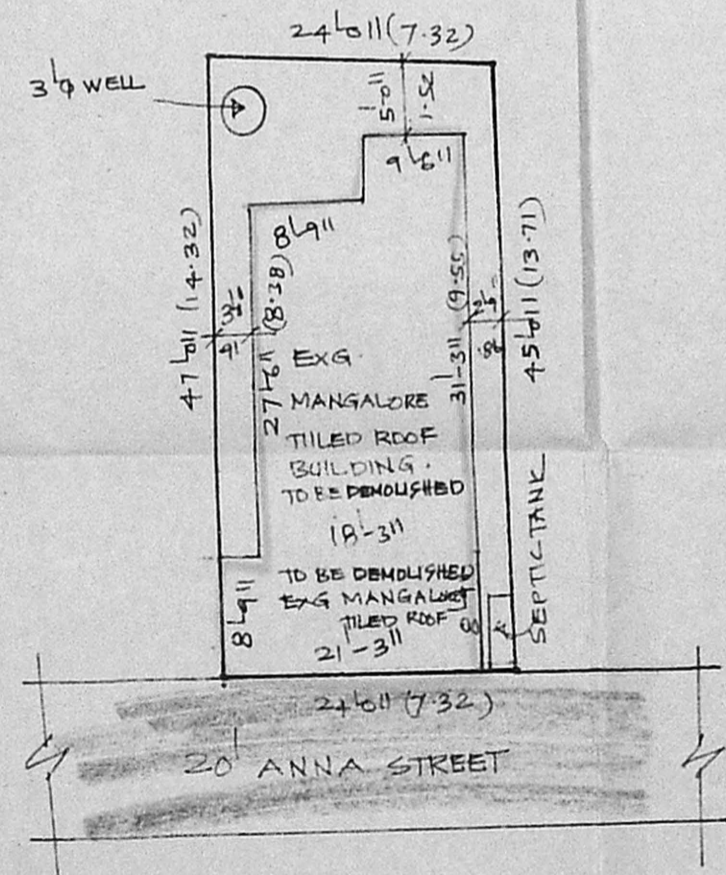 24'-0"(7.32)
3'φ WELL
5'-0"
1.52
9'-6"
8'-9"
47'-0" (14.32)
3'-
27'-6" (8.38)
31'-3" (9.55)
45'-0" (13.71)
EXG.
MANGALORE
TILED ROOF
BUILDING.
TO BE DEMOLISHED
18'-3"
TO BE DEMOLISHED
EXG MANGALORE
TILED ROOF
8'-9"
21'-3"
SEPTIC TANK
24'-0" (7.32)
20' ANNA STREET